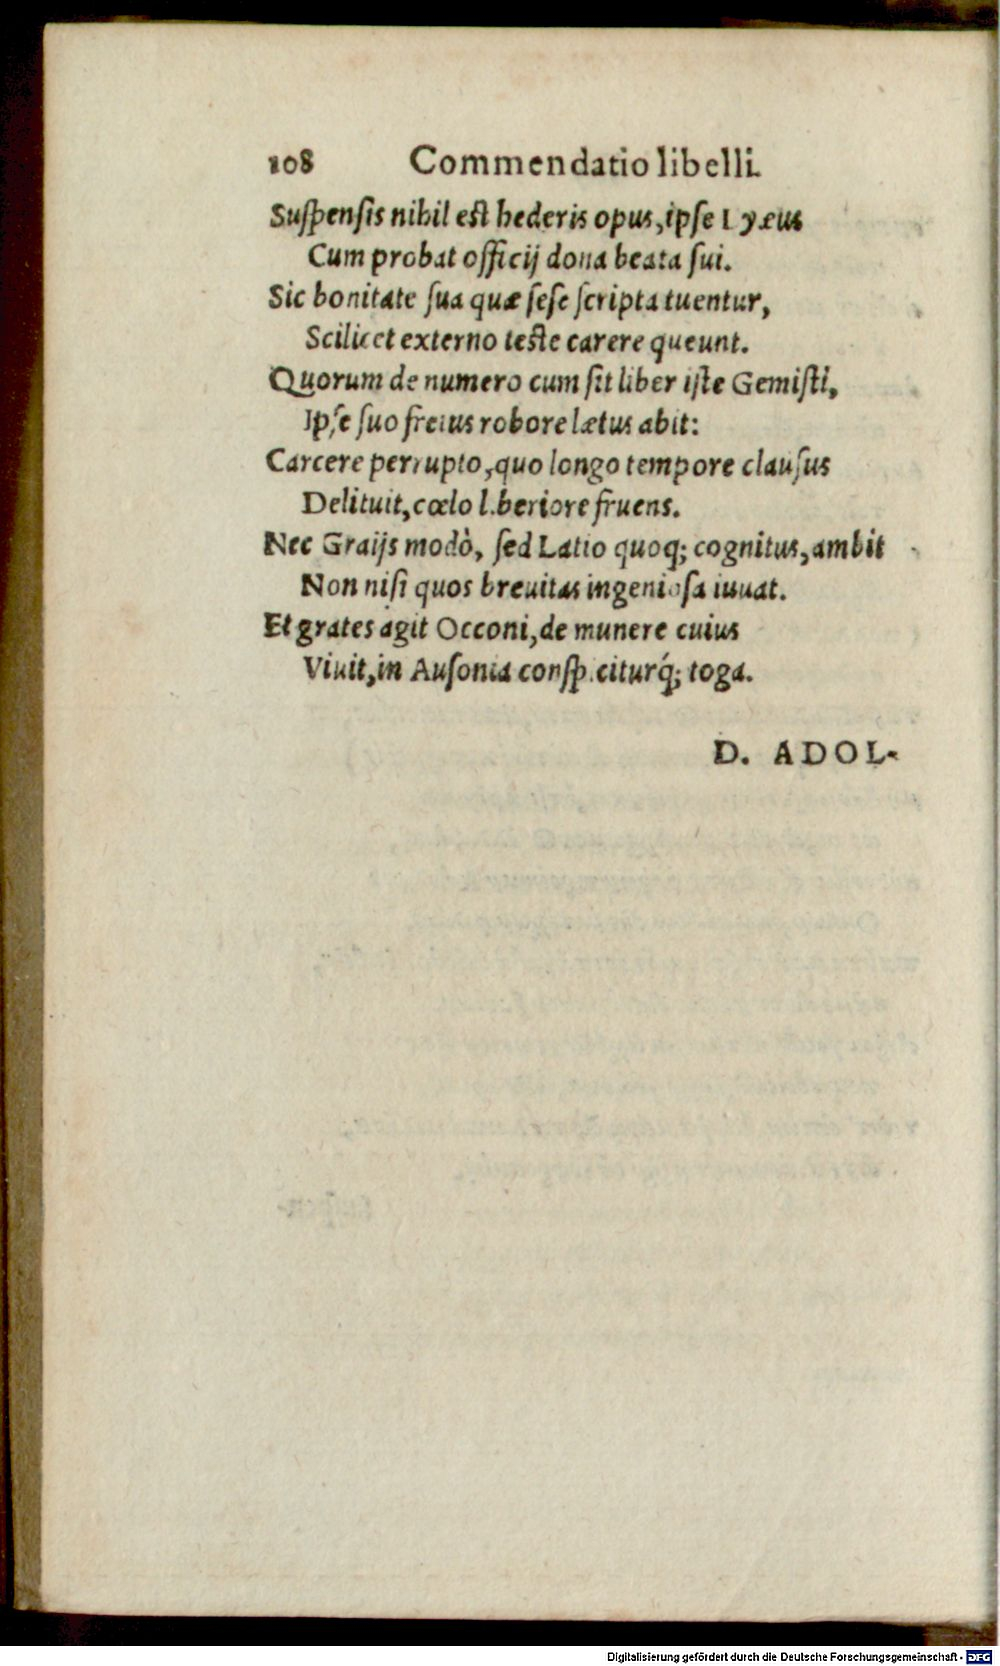 108 Commendatio libelli.
Suſpenſis nihil eſt hederis opus, ipſe Lyæus
Cum probat officij dona beata ſui.
Sic bonitate ſua quæ ſeſe ſcripta tuentur,
Scilicet externo teſte carere queunt.
Quorum de numero cum ſit liber iſte Gemiſti,
Ipſe ſuo fretus robore lætus abit:
Carcere perrupto, quo longo tempore clauſus
Delituit, cœlo liberiore fruens.
Nec Graijs modò, ſed Latio quoq; cognitus, ambit
Non niſi quos breuitas ingenioſa iuuat.
Et grates agit Occoni, de munere cuius
Viuit, in Auſonia conſpiciturq́; toga.
D. ADOL-
Digitalisierung gefördert durch die Deutsche Forschungsgemeinschaft - DFG